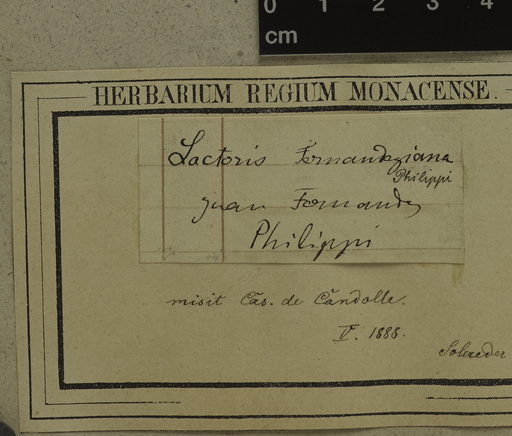 0 1 2 3 4
cm
HERBARIUM REGIUM MONACENSE.
Lactoris Fernandeziana
Philippi
Juan Fernandez
Philippi
misit Cas. de Candolle.
V. 1888.
Solereder